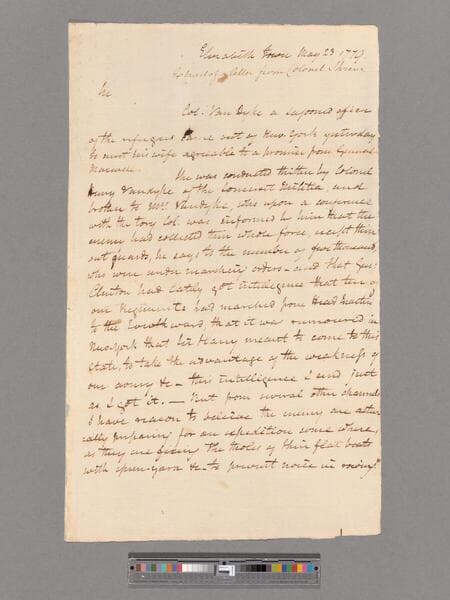 Elizabeth Town May 23 1779
Extract of a Letter from Colonel Shreve
Sir
Col. Van Dyke a officer
of the refugees came out of New-York yesterday
to meet his wife agreeable to a promise from General
Maxwell. She was conducted thither by Colonel
Henry Vandyke of the Somerset Militia, and
brother to Mrs Vandyke, who upon a conference
with the tory Col. was informed by him that the
enemy had collected their whole force, except their
out guards, he says to the number of five thousand,
who were under marching orders - and that Gen:
Clinton had lately got intelligence that ten of
our Regiments had marched from Head Quarters
to the Southward, that it was rumoured in
New-York that Sir Henry meant to come to this
State, to take the advantage of the weakness of
our army &c - this intelligence I send just
as I got it. - But from several other channels
I have reason to believe the enemy are actu-
ally preparing for an expedition some where,
as they are fixing the tholes of their flat boats
with spun-yarn &c to prevent noise in rowing"